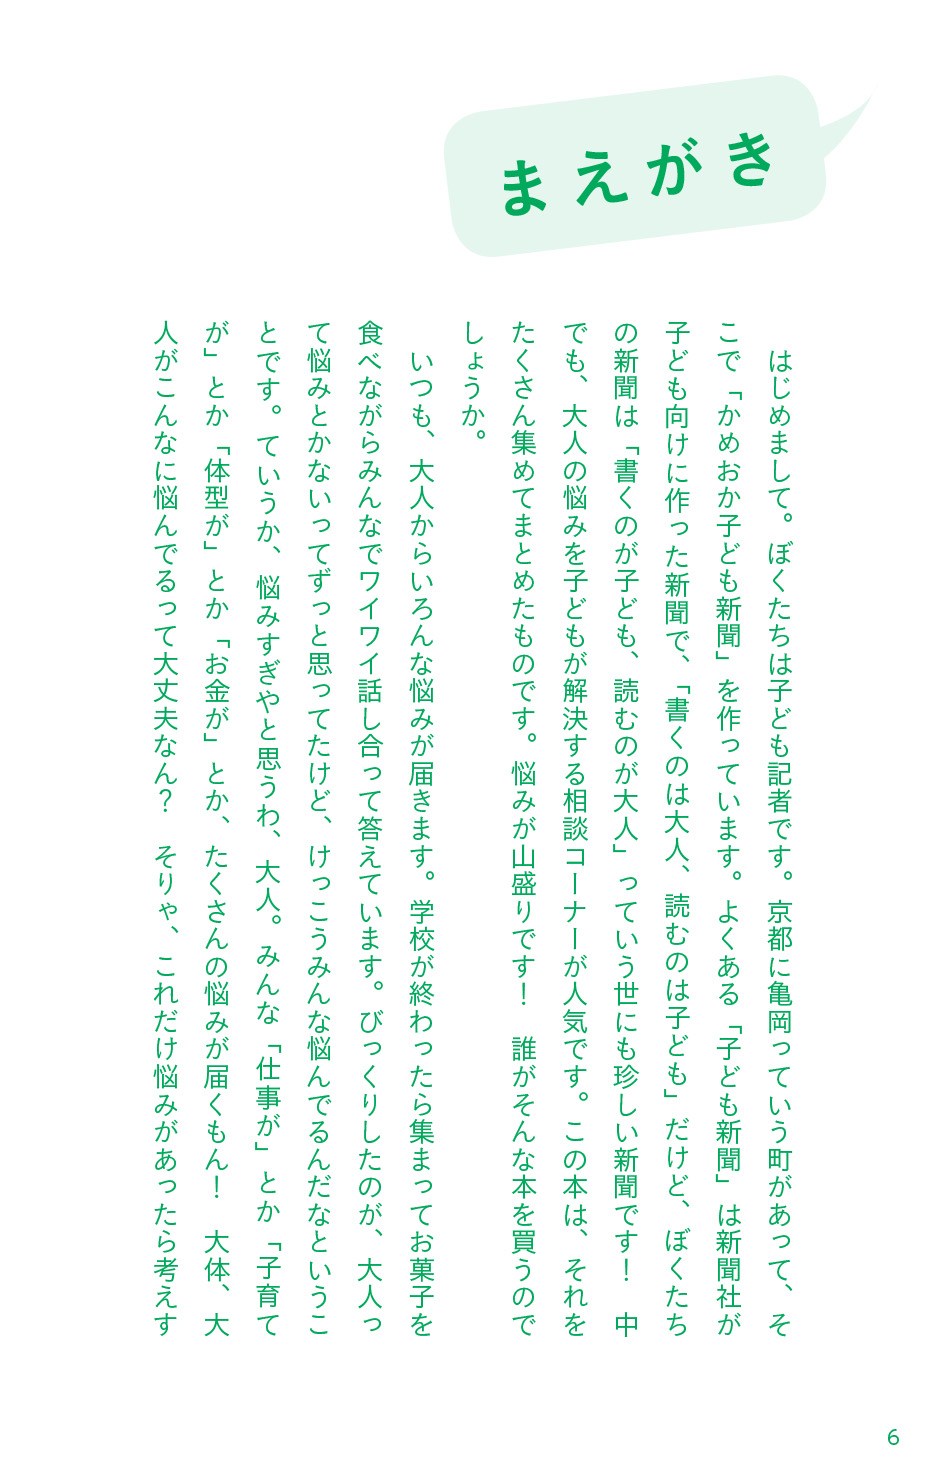 まえがき
　はじめまして。ぼくたちは子ども記者です。京都に亀岡っていう町があって、そ
こで「かめおか子ども新聞」を作っています。よくある「子ども新聞」は新聞社が
子ども向けに作った新聞で、「書くのは大人、読むのは子ども」だけど、ぼくたち
の新聞は「書くのが子ども、読むのが大人」っていう世にも珍しい新聞です！　中
でも、大人の悩みを子どもが解決する相談コーナーが人気です。この本は、それを
たくさん集めてまとめたものです。悩みが山盛りです！　誰がそんな本を買うので
しょうか。
　いつも、大人からいろんな悩みが届きます。学校が終わったら集まってお菓子を
食べながらみんなでワイワイ話し合って答えています。びっくりしたのが、大人っ
て悩みとかないってずっと思ってたけど、けっこうみんな悩んでるんだなというこ
とです。ていうか、悩みすぎやと思うわ、大人。みんな「仕事が」とか「子育て
が」とか「体型が」とか「お金が」とか、たくさんの悩みが届くもん！　大体、大
人がこんなに悩んでるって大丈夫なん？　そりゃ、これだけ悩みがあったら考えす
6